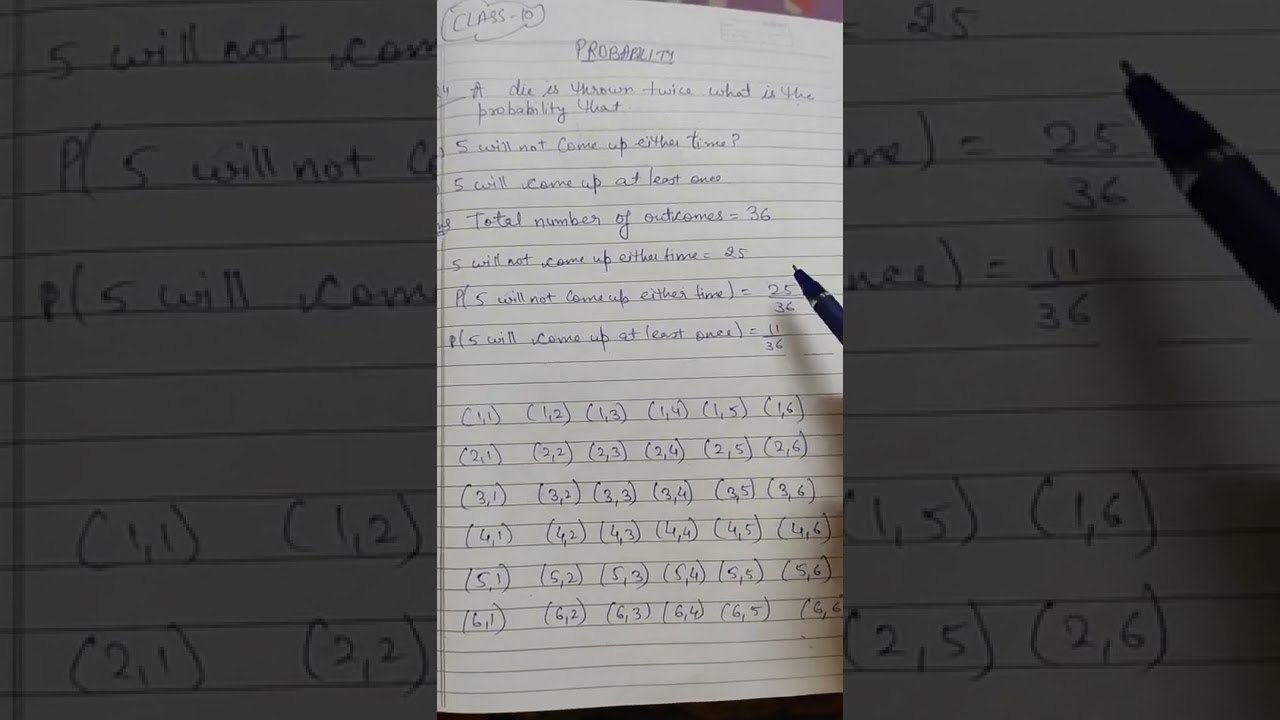 CLASS-10
PROBABILITY
A die is thrown twice what is the
probability that
5 will not come up either time?
5 will come up at least once
Total number of outcomes = 36
5 will not come up either time = 25
P(5 will not come up either time) = 25/36
P(5 will come up at least once) = 11/36
(1,1) (1,2) (1,3) (1,4) (1,5) (1,6)
(2,1) (2,2) (2,3) (2,4) (2,5) (2,6)
(3,1) (3,2) (3,3) (3,4) (3,5) (3,6)
(4,1) (4,2) (4,3) (4,4) (4,5) (4,6)
(5,1) (5,2) (5,3) (5,4) (5,5) (5,6)
(6,1) (6,2) (6,3) (6,4) (6,5) (6,6